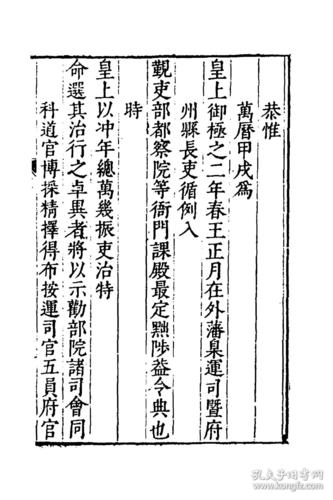 恭惟
萬曆甲戌爲
皇上御極之二年春王正月在外藩臬運司曁府
州縣長吏循例入
覲吏部都察院等衙門課殿最定黜陟益令典也
時
皇上以冲年總萬幾振吏治特
命選其治行之卓異者將以示勸部院諸司會同
科道官博採精擇得布按運司官五員府官
孔夫子旧书网